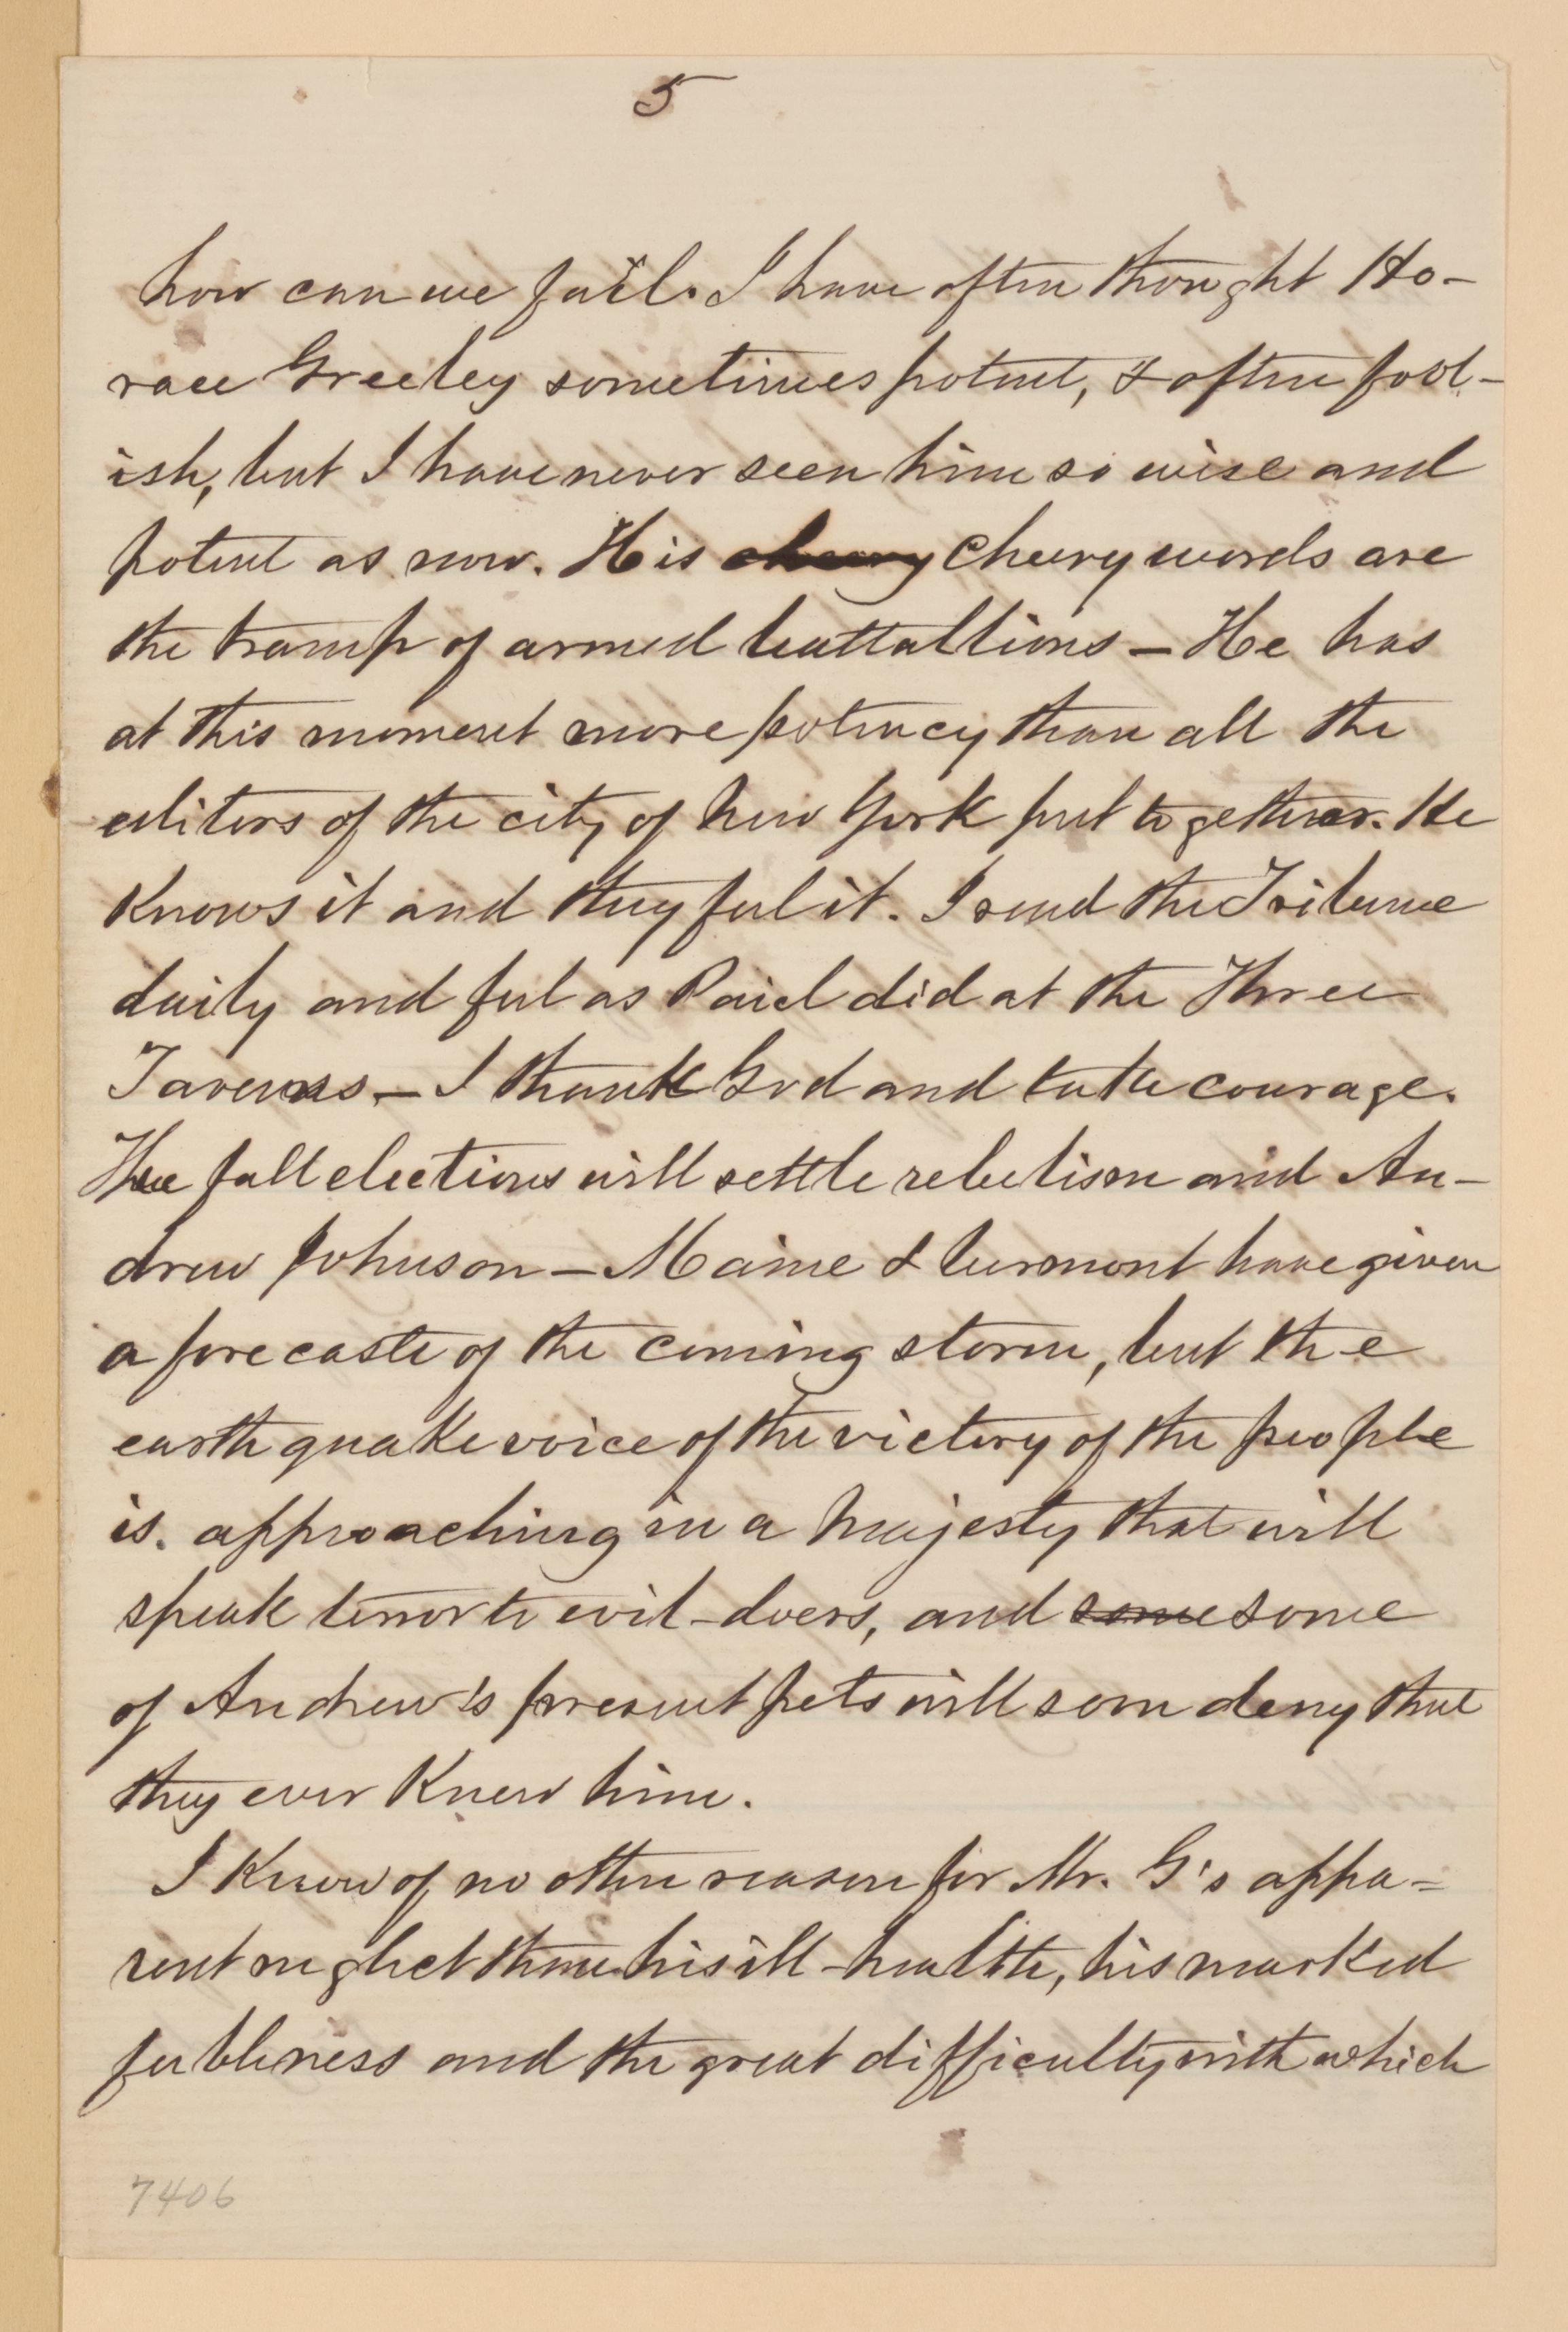 5
how can we fail. I have often thought Ho-
race Greeley sometimes potent, & often fool-
ish, but I have never seen him so wise and
potent as now. His cheery cheery words are
the tramp of armed battallions – He has
at this moment more potency than all the
editors of the city of New York put together. He
knows it and they feel it. I read the Tribune
daily and feel as Paul did at the Three
Taverns – I thank God and take courage.
The fall elections will settle rebelism and An-
drew Johnson – Maine & Vermont have given
a forecaste of the coming storm, but the
earthquake voice of the victory of the people
is. approaching in a majesty that will
speak terror to evil-doers, and some some
of Andrew's present pets will soon deny that
they ever knew him.
I know of no other reason for Mr. G's appa=
rent neglect than his ill-health, his marked
feebleness and the great difficulty with which
7406